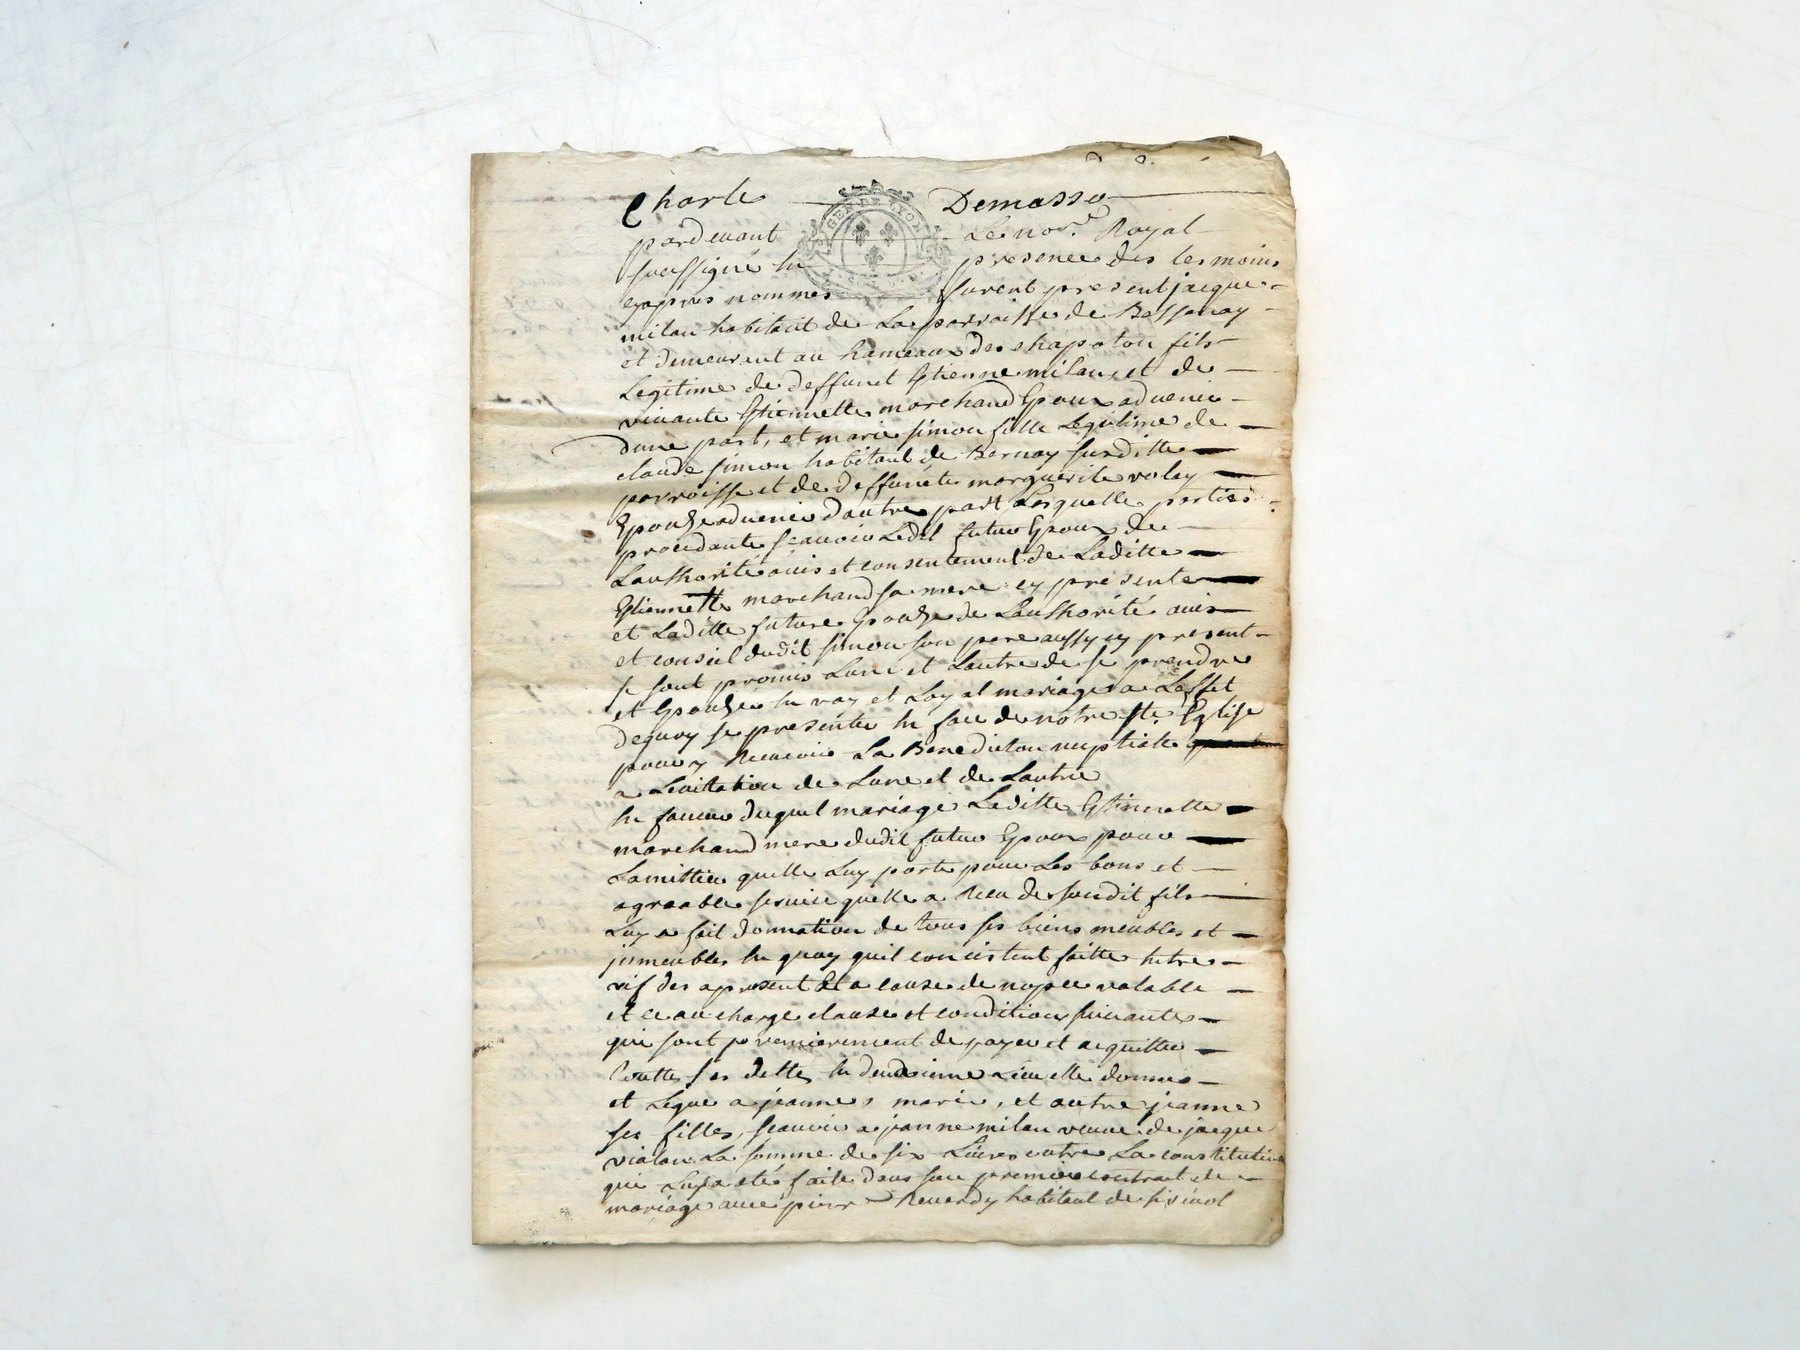 Charle Demasso
GEN DE LYON
pardevant Le nore Royal
soussigné En presence des tesmoins
eyapres nommes furent present jacque
milan habitant de La parroisse de Bessenay
et demeurant au hameaux de chapoton fils
Legitime de deffunct Estienne milan, et de
vivante Estiennette marchand Epoux advenir
dune part, et marie simon fille Legitime de
claude simon habitant de Bernay susditte
parroisse et de deffuncte marguerite volay
Epouze advenir dautre part Lesquelle parties
procedante scavoir Ledit futur Epoux de
Lauthorité avis et consentement de Laditte
Estiennette marchand sa mere cy presente
et Laditte future Epouze de Lauthorité avis
et conseil dudit simon son pere aussy cy present
se sont promis Lune et Lautre de se prendre
et Epouzé En vray et Loyal mariage a Leffet
dequoy se presenter En face de notre ste Eglise
pour y Recevoir La Benediction nuptialle
a Lenvitation de Lune et de Lautre
En faveur duquel mariage Laditte Estiennette
marchand mere dudit futur Epoux pour
Lamittier quelle Luy porte pour Les bons et
agreable service quelle a Receu de sondit fils
Luy a fait donnation de tous ses biens meubles et
jmmeubles En quoy quil concistent faitte Entre
vif des apresent et a cause de nopce valable
et ce au charge clause et condition suivantes
qui sont premierement de payer et acquitter
toutte ses dettes En deuxieme Lieu elle donne
et Legue a jeanne, marie, et autre jeanne
ses filles, scavoir a jeanne milan veuve de jacque
vialon La somme de six Livres outre La constitution
qui Luy a eté faite dans son premier contrat de
mariage avec pierre Reverdy habitant de